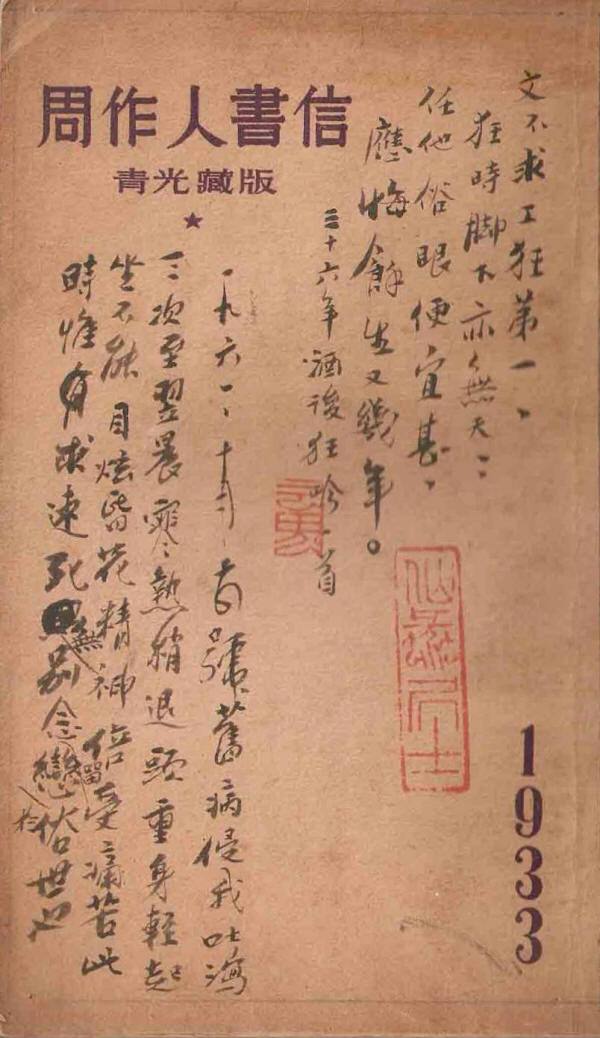 周作人書信
青光藏版
★
文不求工狂第一、
狂時脚下亦無天：
任他俗眼便宜甚、
應悔餘生又幾年。
三十六年酒後狂吟一首
一九六一、十月、舊病侵我吐瀉
三次至翌晨寒熱稍退頭重身輕起
坐不能目炫昏花精神倍受痛苦此
時惟有求速死無別念留戀於俗世也
居士
1933